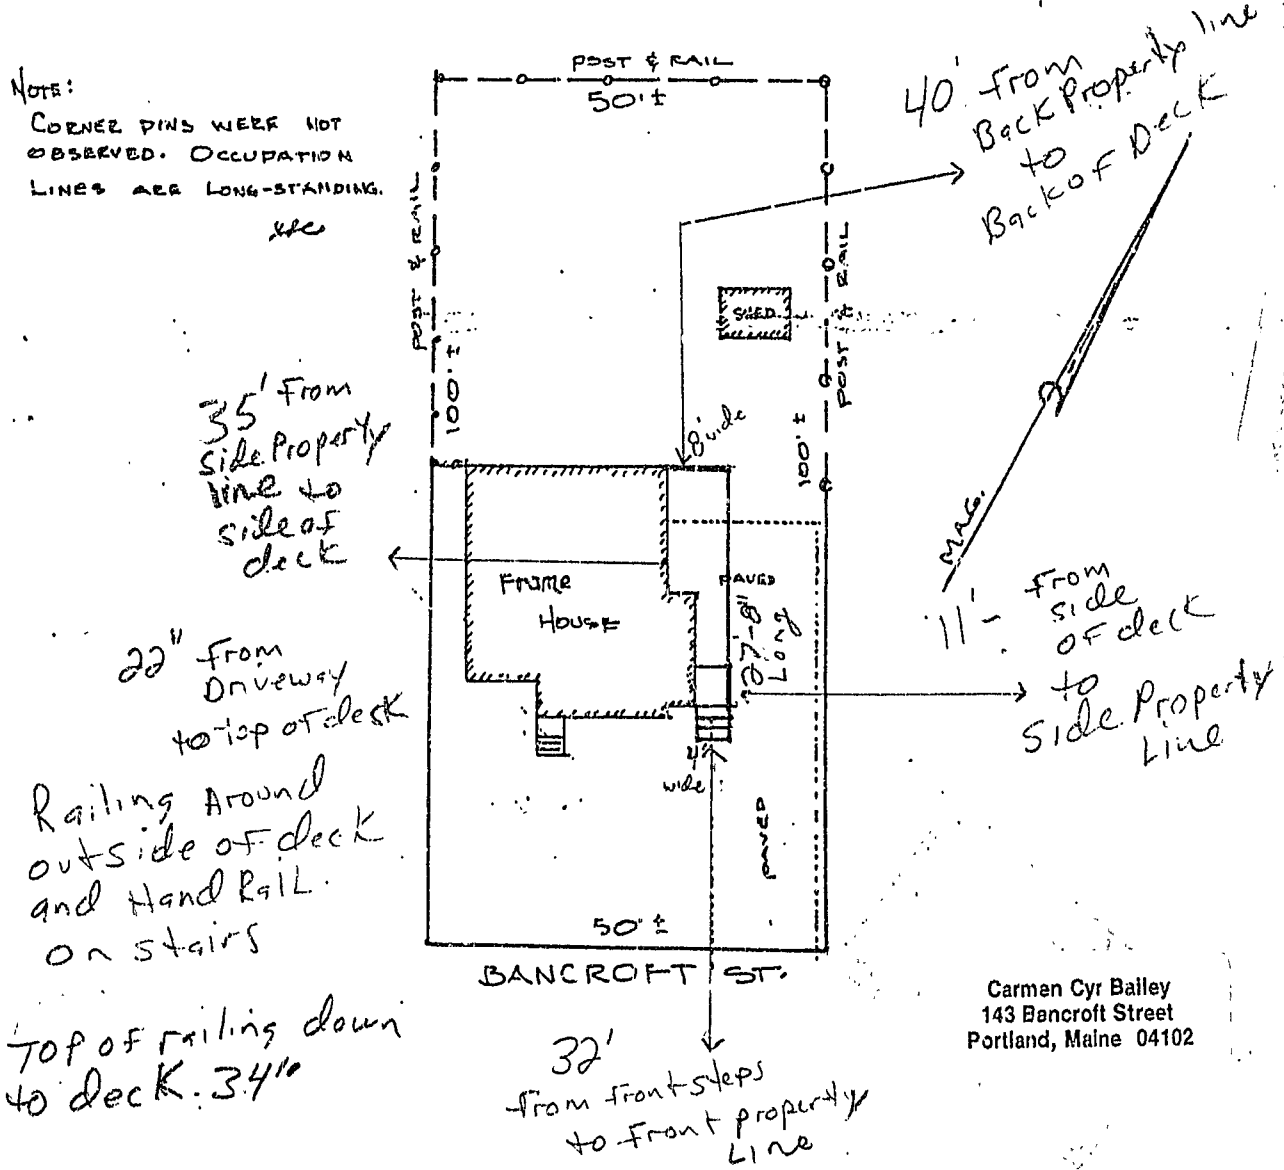 NOTE:
CORNER PINS WERE NOT
OBSERVED. OCCUPATION
LINES ARE LONG-STANDING.
POST & RAIL
50'±
40' from
Back Property line
to
Back of Deck
POST & RAIL
100'±
SHED
POST & RAIL
100'±
8' wide
35' from
side Property
line to
side of
deck
Frame
House
PAVED
27'-8"
Long
MAG.
11'- from
side
of deck
to
Side Property
Line
22" from
Driveway
to top of desk
wide
PAVED
Railing Around
outside of deck
and Hand RaiL.
on stairs
50'±
BANCROFT ST.
Carmen Cyr Bailey
143 Bancroft Street
Portland, Maine 04102
Top of railing down
to deck. 34"
32'
from front steps
to front property
Line